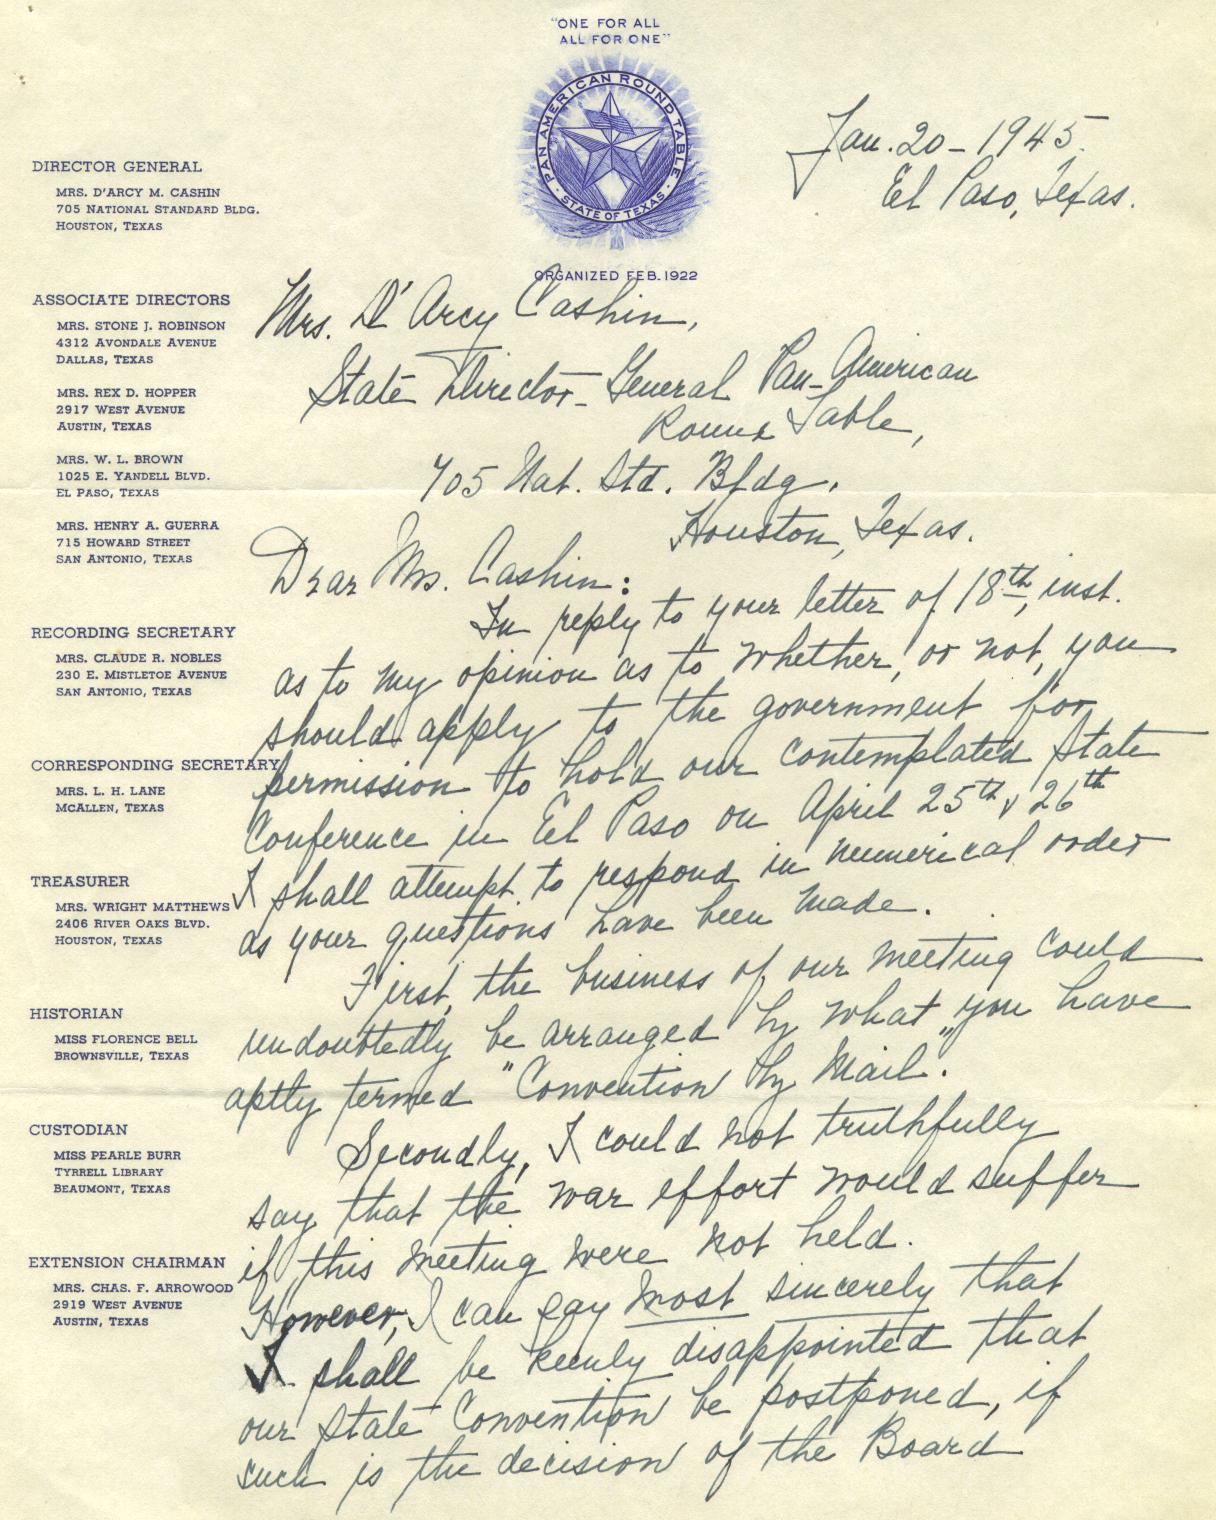 "ONE FOR ALL
ALL FOR ONE"
PAN AMERICAN ROUND TABLE
· STATE OF TEXAS ·
ORGANIZED FEB. 1922
Jan. 20 - 1945.
El Paso, Texas.
DIRECTOR GENERAL
MRS. D'ARCY M. CASHIN
705 NATIONAL STANDARD BLDG.
HOUSTON, TEXAS
ASSOCIATE DIRECTORS
MRS. STONE J. ROBINSON
4312 AVONDALE AVENUE
DALLAS, TEXAS
MRS. REX D. HOPPER
2917 WEST AVENUE
AUSTIN, TEXAS
MRS. W. L. BROWN
1025 E. YANDELL BLVD.
EL PASO, TEXAS
MRS. HENRY A. GUERRA
715 HOWARD STREET
SAN ANTONIO, TEXAS
RECORDING SECRETARY
MRS. CLAUDE R. NOBLES
230 E. MISTLETOE AVENUE
SAN ANTONIO, TEXAS
CORRESPONDING SECRETARY
MRS. L. H. LANE
MCALLEN, TEXAS
TREASURER
MRS. WRIGHT MATTHEWS
2406 RIVER OAKS BLVD.
HOUSTON, TEXAS
HISTORIAN
MISS FLORENCE BELL
BROWNSVILLE, TEXAS
CUSTODIAN
MISS PEARLE BURR
TYRRELL LIBRARY
BEAUMONT, TEXAS
EXTENSION CHAIRMAN
MRS. CHAS. F. ARROWOOD
2919 WEST AVENUE
AUSTIN, TEXAS
Mrs. D'Arcy Cashin,
State Director-General Pan-American
Round Table,
705 Nat. Std. Bldg.
Houston, Texas.
Dear Mrs. Cashin:
In reply to your letter of 18th, inst.
as to my opinion as to whether, or not, you
should apply to the government for
permission to hold our contemplated State
Conference in El Paso on April 25th & 26th
I shall attempt to respond in numerical order
as your questions have been made.
First, the business of our meeting could
undoubtedly be arranged by what you have
aptly termed "Convention by Mail".
Secondly, I could not truthfully
say that the war effort would suffer
if this meeting were not held.
However, I can say most sincerely that
I shall be keenly disappointed that
our State Convention be postponed, if
such is the decision of the Board